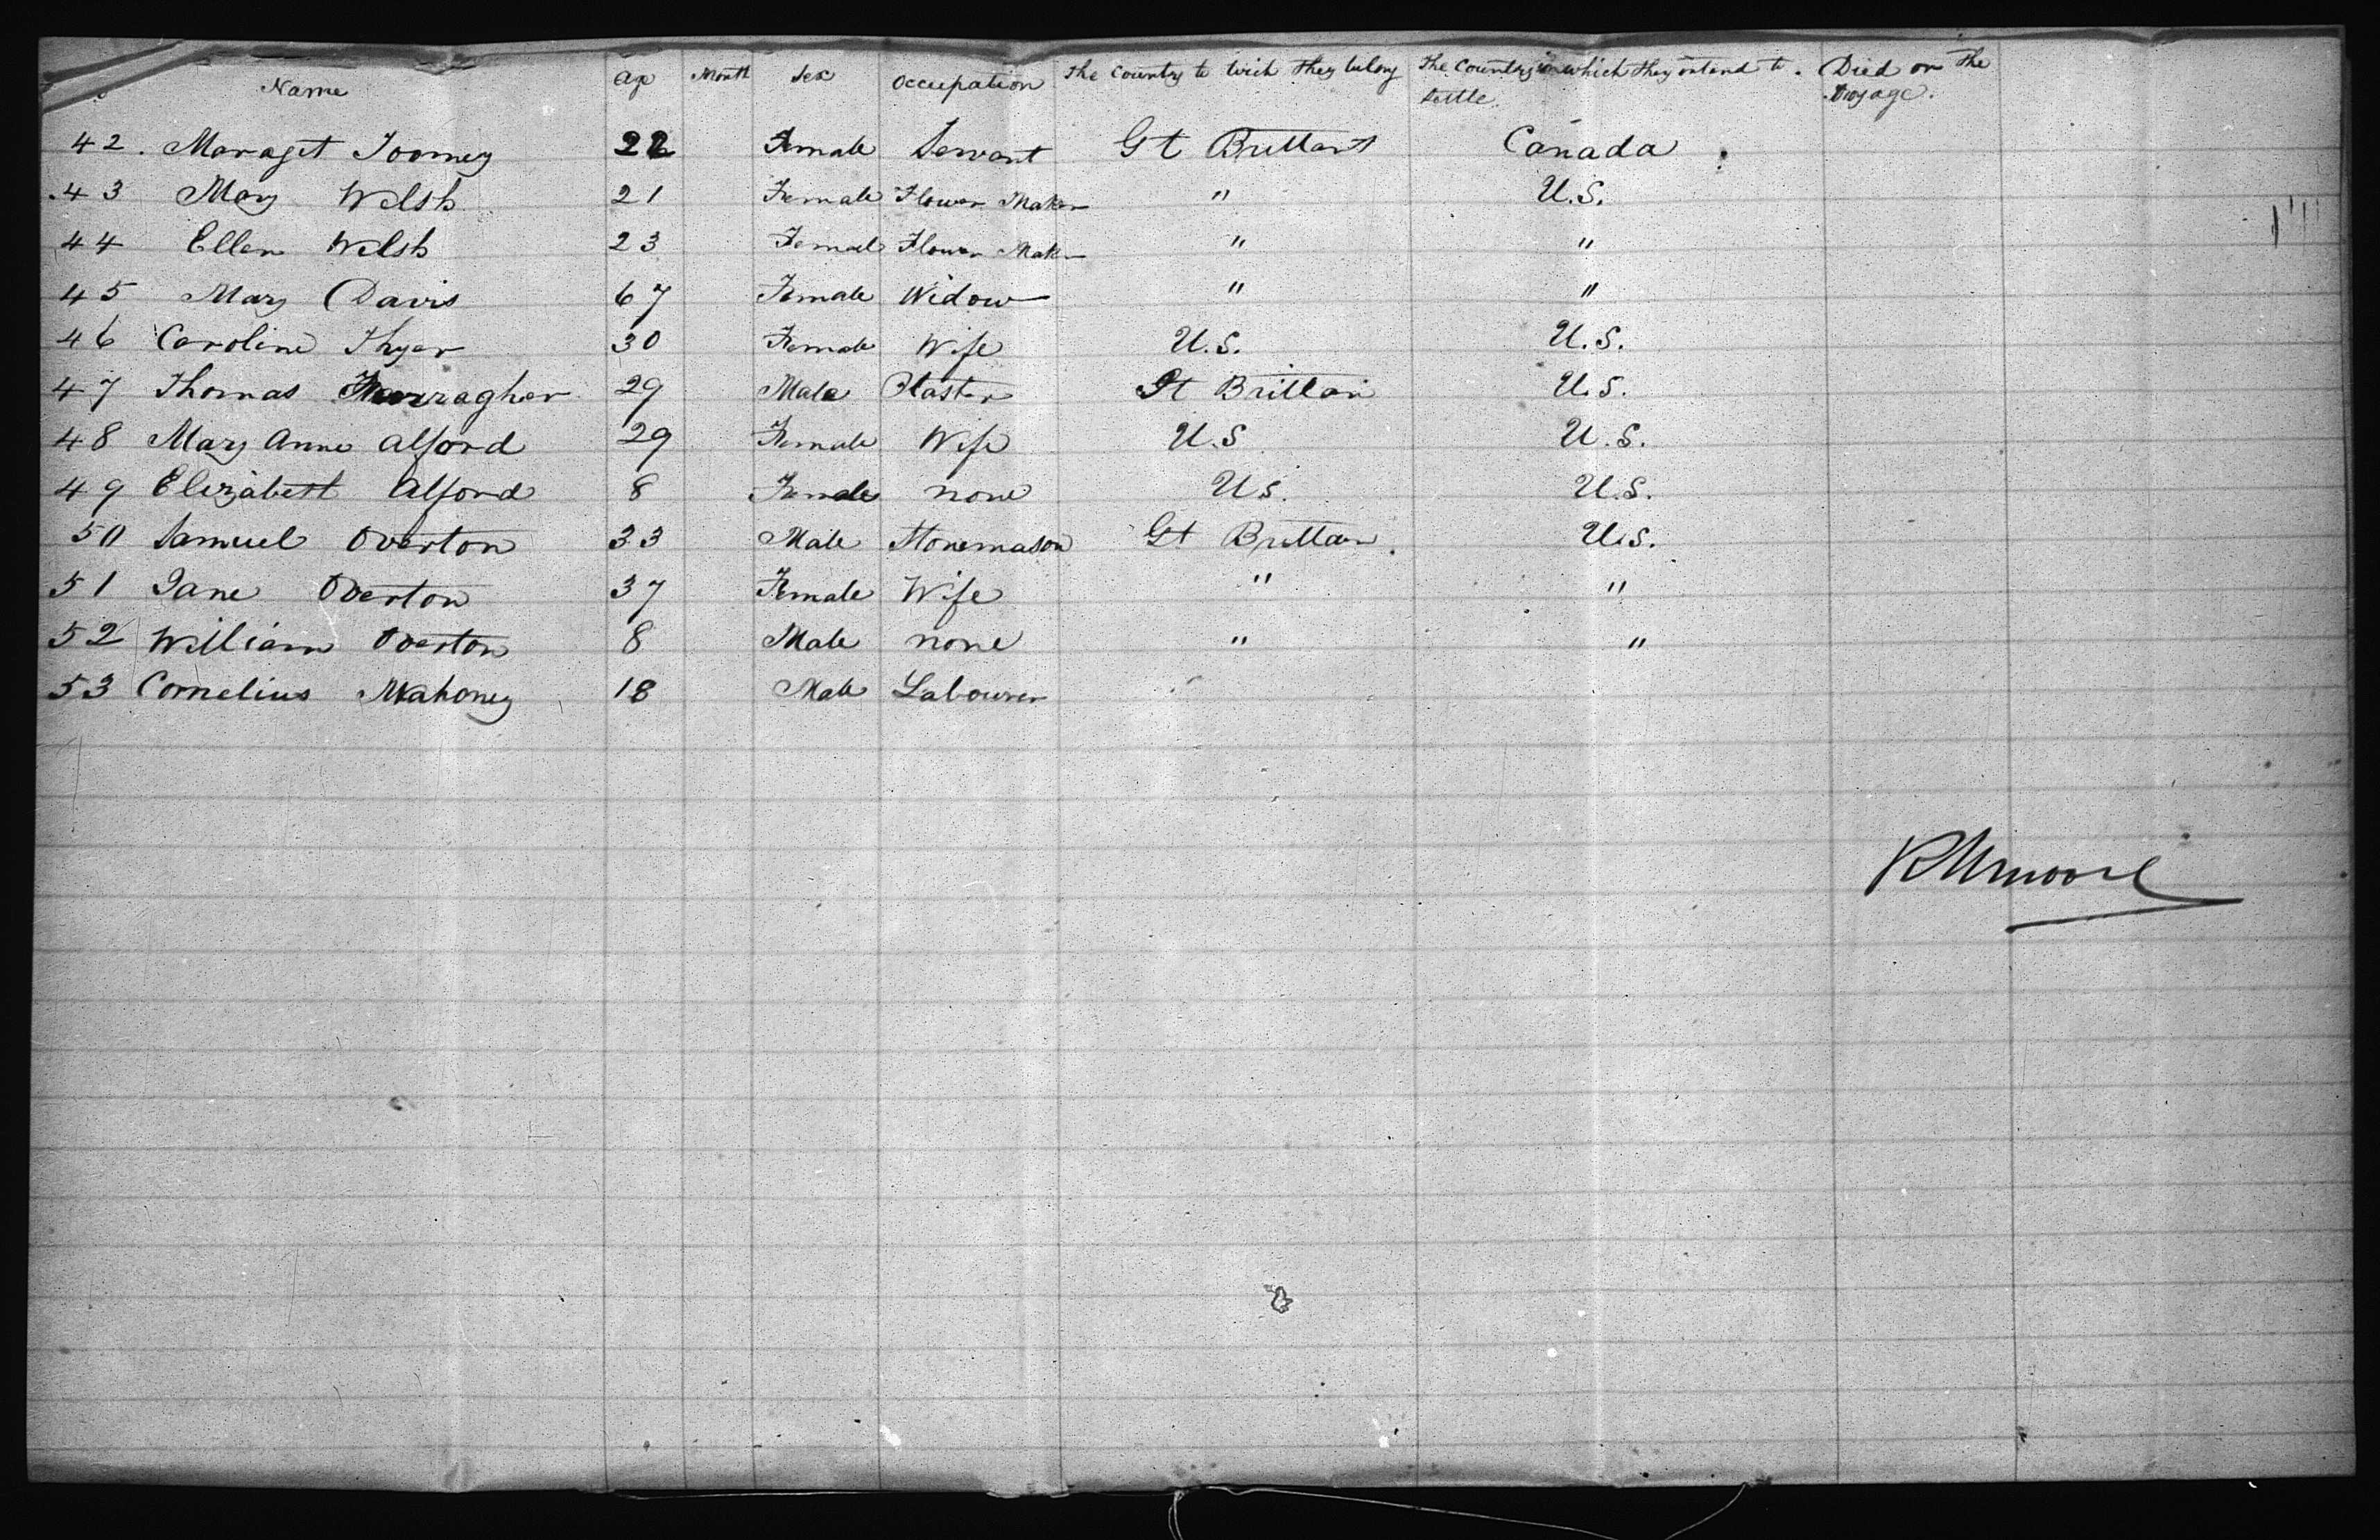 Name Age Month Sex Occupation The Country to wich they belong The Country in which they intend to settle. Died on the Voyage.
42. Maraget Toomey 22 Female Servant Gt Brittan Canada
43 Mary Welsh 21 Female Flower Maker " U.S.
44 Ellen Welsh 23 Female Flower Maker " "
45 Mary Davis 67 Female Widow " "
46 Caroline Thyer 30 Female Wife U.S. U.S.
47 Thomas 29 Male Plaster Gt Brittan U.S.
48 Mary Anne Alford 29 Female Wife U.S U.S.
49 Elizabeth Alford 8 Female none U.S. U.S.
50 Samuel Overton 33 Male Stonemason Gt Brittan. U.S.
51 Jane Overton 37 Female Wife " "
52 William Overton 8 Male none " "
53 Cornelius Mahoney 18 Male Labourer